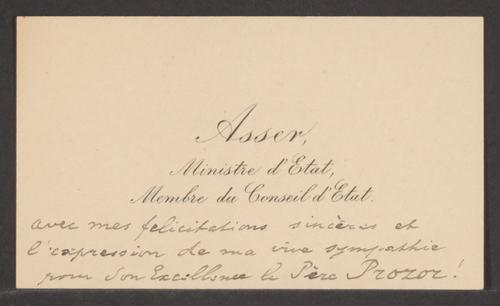 Asser,
Ministre d'Etat,
Membre du Conseil d'Etat.
avec mes félicitations sincères et
l'expression de ma vive sympathie
pour Son Excellence le Père Prozor!